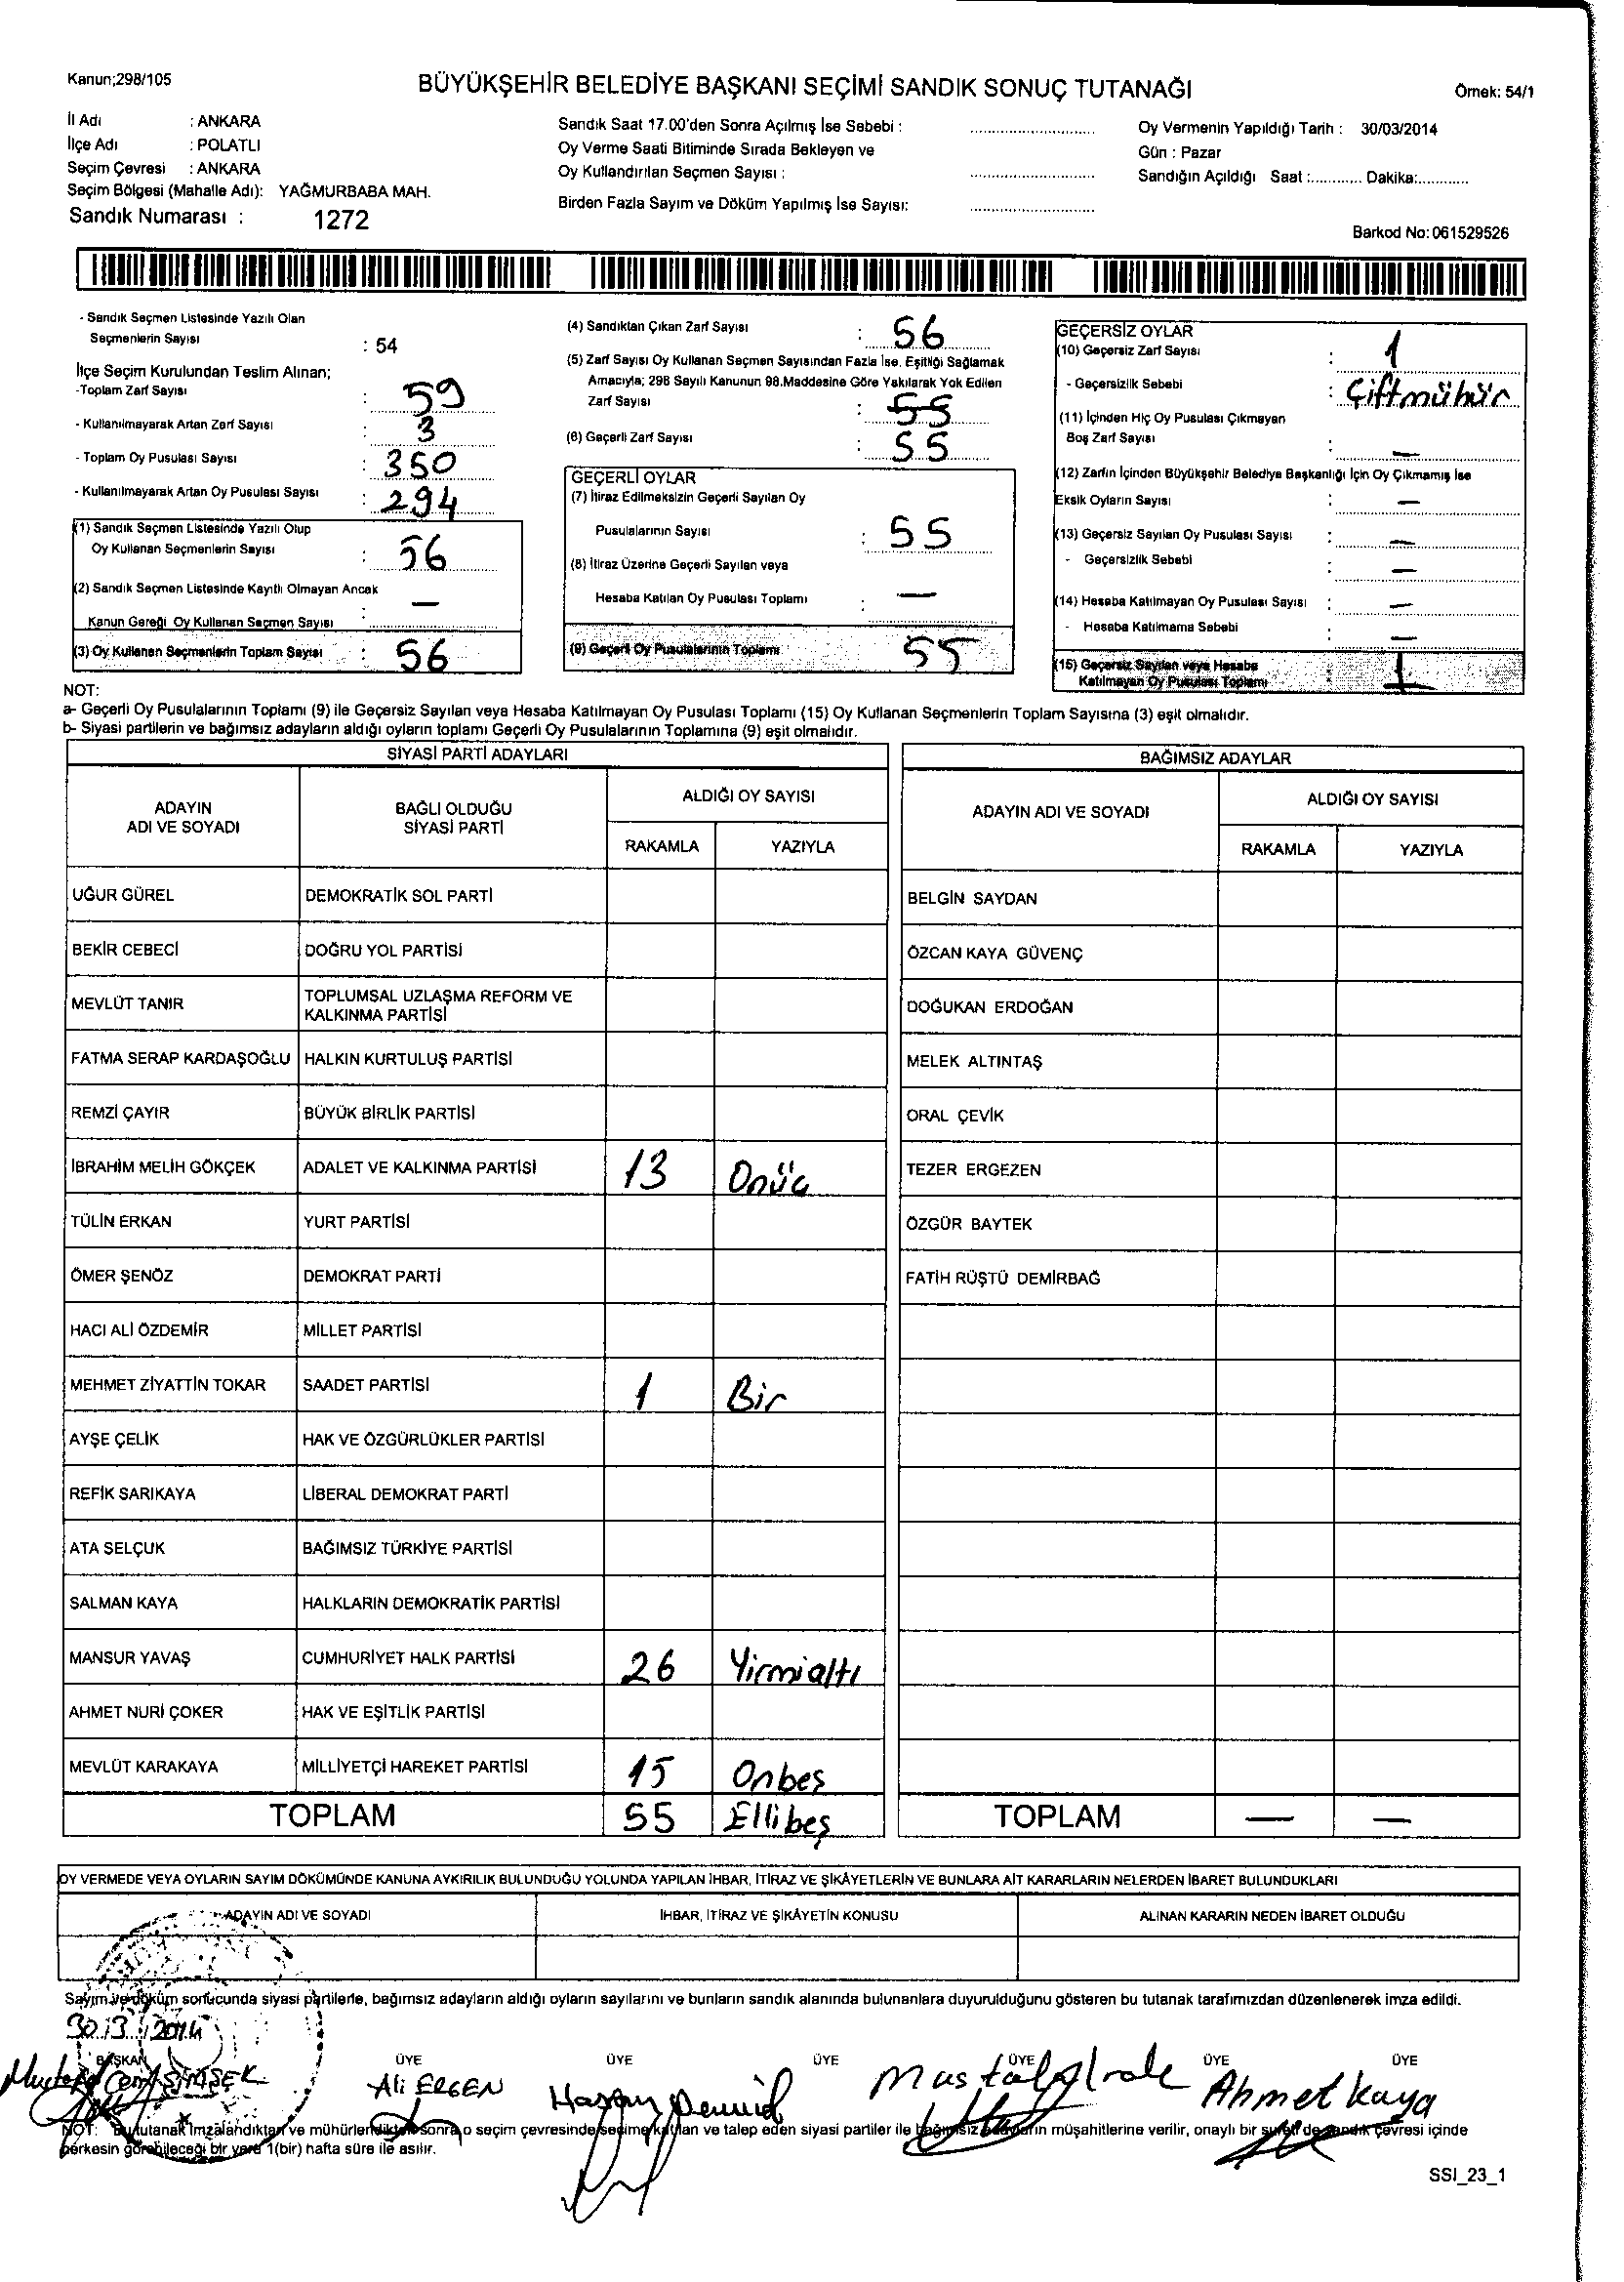 Kanun;298/105
BÜYÜKŞEHİR BELEDİYE BAŞKANI SEÇİMİ SANDIK SONUÇ TUTANAĞI
Örnek: 54/1
İl Adı : ANKARA
İlçe Adı : POLATLI
Seçim Çevresi : ANKARA
Seçim Bölgesi (Mahalle Adı): YAĞMURBABA MAH.
Sandık Numarası : 1272
Sandık Saat 17.00'den Sonra Açılmış İse Sebebi :
Oy Verme Saati Bitiminde Sırada Bekleyen ve
Oy Kullandırılan Seçmen Sayısı :
Birden Fazla Sayım ve Döküm Yapılmış İse Sayısı:
Oy Vermenin Yapıldığı Tarih : 30/03/2014
Gün : Pazar
Sandığın Açıldığı Saat :........... Dakika:...........
Barkod No: 061529526
- Sandık Seçmen Listesinde Yazılı Olan
Seçmenlerin Sayısı : 54
İlçe Seçim Kurulundan Teslim Alınan;
-Toplam Zarf Sayısı : 59
- Kullanılmayarak Artan Zarf Sayısı : 3
- Toplam Oy Pusulası Sayısı : 350
- Kullanılmayarak Artan Oy Pusulası Sayısı : 294
(1) Sandık Seçmen Listesinde Yazılı Olup
Oy Kullanan Seçmenlerin Sayısı : 56
(2) Sandık Seçmen Listesinde Kayıtlı Olmayan Ancak
Kanun Gereği Oy Kullanan Seçmen Sayısı : —
(3) Oy Kullanan Seçmenlerin Toplam Sayısı : 56
(4) Sandıktan Çıkan Zarf Sayısı : 56
(5) Zarf Sayısı Oy Kullanan Seçmen Sayısından Fazla İse, Eşitliği Sağlamak
Amacıyla; 298 Sayılı Kanunun 98.Maddesine Göre Yakılarak Yok Edilen
Zarf Sayısı : 55
(6) Geçerli Zarf Sayısı : 55
GEÇERLİ OYLAR
(7) İtiraz Edilmeksizin Geçerli Sayılan Oy
Pusulalarının Sayısı : 55
(8) İtiraz Üzerine Geçerli Sayılan veya
Hesaba Katılan Oy Pusulası Toplamı : —
(9) Geçerli Oy Pusulalarının Toplamı 55
GEÇERSİZ OYLAR
(10) Geçersiz Zarf Sayısı : 1
- Geçersizlik Sebebi : Çiftmühür
(11) İçinden Hiç Oy Pusulası Çıkmayan
Boş Zarf Sayısı : —
(12) Zarfın İçinden Büyükşehir Belediye Başkanlığı İçin Oy Çıkmamış İse
Eksik Oyların Sayısı : —
(13) Geçersiz Sayılan Oy Pusulası Sayısı : —
- Geçersizlik Sebebi : —
(14) Hesaba Katılmayan Oy Pusulası Sayısı : —
- Hesaba Katılmama Sebebi : —
(15) Geçersiz Sayılan veya Hesaba
Katılmayan Oy Pusulası Toplamı : 1
NOT:
a- Geçerli Oy Pusulalarının Toplamı (9) ile Geçersiz Sayılan veya Hesaba Katılmayan Oy Pusulası Toplamı (15) Oy Kullanan Seçmenlerin Toplam Sayısına (3) eşit olmalıdır.
b- Siyasi partilerin ve bağımsız adayların aldığı oyların toplamı Geçerli Oy Pusulalarının Toplamına (9) eşit olmalıdır.
SİYASİ PARTİ ADAYLARI
ADAYIN ADI VE SOYADI
BAĞLI OLDUĞU SİYASİ PARTİ
ALDIĞI OY SAYISI
RAKAMLA YAZIYLA
UĞUR GÜREL DEMOKRATİK SOL PARTİ
BEKİR CEBECİ DOĞRU YOL PARTİSİ
MEVLÜT TANIR TOPLUMSAL UZLAŞMA REFORM VE
KALKINMA PARTİSİ
FATMA SERAP KARDAŞOĞLU HALKIN KURTULUŞ PARTİSİ
REMZİ ÇAYIR BÜYÜK BİRLİK PARTİSİ
İBRAHİM MELİH GÖKÇEK ADALET VE KALKINMA PARTİSİ 13 Onüç
TÜLİN ERKAN YURT PARTİSİ
ÖMER ŞENÖZ DEMOKRAT PARTİ
HACI ALİ ÖZDEMİR MİLLET PARTİSİ
MEHMET ZİYATTİN TOKAR SAADET PARTİSİ 1 Bir
AYŞE ÇELİK HAK VE ÖZGÜRLÜKLER PARTİSİ
REFİK SARIKAYA LİBERAL DEMOKRAT PARTİ
ATA SELÇUK BAĞIMSIZ TÜRKİYE PARTİSİ
SALMAN KAYA HALKLARIN DEMOKRATİK PARTİSİ
MANSUR YAVAŞ CUMHURİYET HALK PARTİSİ 26 Yirmialtı
AHMET NURİ ÇOKER HAK VE EŞİTLİK PARTİSİ
MEVLÜT KARAKAYA MİLLİYETÇİ HAREKET PARTİSİ 15 Onbeş
TOPLAM 55 Ellibeş
BAĞIMSIZ ADAYLAR
ADAYIN ADI VE SOYADI
ALDIĞI OY SAYISI
RAKAMLA YAZIYLA
BELGİN SAYDAN
ÖZCAN KAYA GÜVENÇ
DOĞUKAN ERDOĞAN
MELEK ALTINTAŞ
ORAL ÇEVİK
TEZER ERGEZEN
ÖZGÜR BAYTEK
FATİH RÜŞTÜ DEMİRBAĞ
TOPLAM — —
OY VERMEDE VEYA OYLARIN SAYIM DÖKÜMÜNDE KANUNA AYKIRILIK BULUNDUĞU YOLUNDA YAPILAN İHBAR, İTİRAZ VE ŞİKÂYETLERİN VE BUNLARA AİT KARARLARIN NELERDEN İBARET BULUNDUKLARI
ADAYIN ADI VE SOYADI İHBAR, İTİRAZ VE ŞİKÂYETİN KONUSU ALINAN KARARIN NEDEN İBARET OLDUĞU
Sayım ve döküm sonucunda siyasi partilerle, bağımsız adayların aldığı oyların sayılarını ve bunların sandık alanında bulunanlara duyurulduğunu gösteren bu tutanak tarafımızdan düzenlenerek imza edildi.
30.3.2014
BAŞKAN ÜYE ÜYE ÜYE ÜYE ÜYE ÜYE
ŞİMŞEK Ali ERGEN Hasan Demir Mustafa Ahmet kaya
NOT: Bu tutanak imzalandıktan ve mühürlendikten sonra o seçim çevresinde seçime katılan ve talep eden siyasi partiler ile bağımsız adayların müşahitlerine verilir, onaylı bir sureti de sandık çevresi içinde
herkesin görebileceği bir yere 1(bir) hafta süre ile asılır.
SSI_23_1